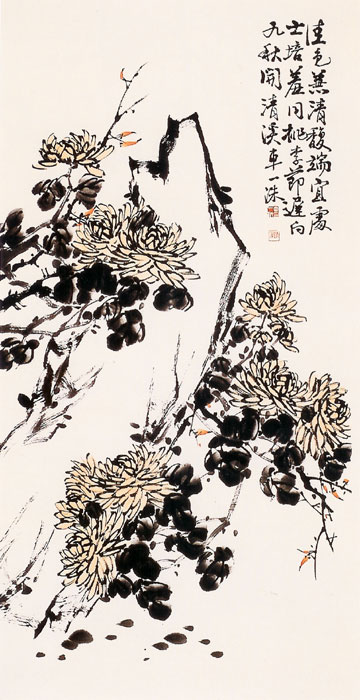 佳色兼清馥端宜處
士培羞同桃李節遲向
九秋開清溪車洙